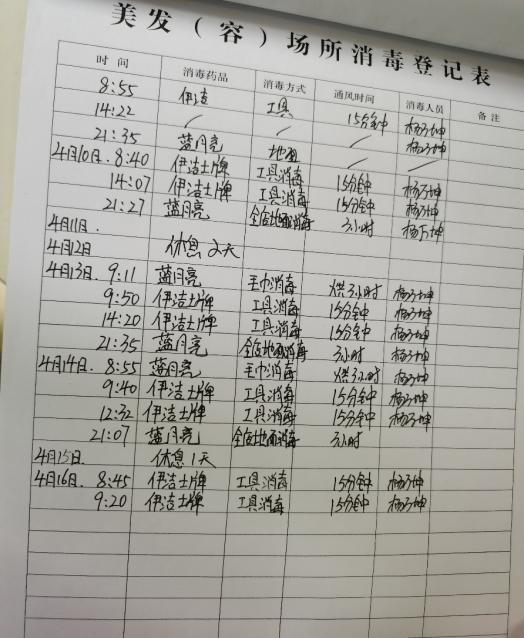 美发（容）场所消毒登记表
时间 消毒药品 消毒方式 通风时间 消毒人员 备注
8:55 伊洁 工具 15分钟 杨子坤
14:22 / / 15分钟 杨子坤
21:35 蓝月亮 地面 / /
4月10日. 8:40 伊洁士牌 工具消毒 15分钟 杨子坤
14:07 伊洁士牌 工具消毒 15分钟 杨子坤
21:27 蓝月亮 全店地面消毒 3小时 杨子坤
4月11日.
4月12日 休息2天
4月13日. 9:11 蓝月亮 毛巾消毒 烘3小时 杨子坤
9:50 伊洁士牌 工具消毒 15分钟 杨子坤
14:20 伊洁士牌 工具消毒 15分钟 杨子坤
21:35 蓝月亮 全店地面消毒 3小时 杨子坤
4月14日. 8:55 蓝月亮 毛巾消毒 烘3小时 杨子坤
9:40 伊洁士牌 工具消毒 15分钟 杨子坤
12:32 伊洁士牌 工具消毒 15分钟 杨子坤
21:07 蓝月亮 全店地面消毒 3小时
4月15日. 休息1天
4月16日. 8:45 伊洁士牌 工具消毒 15分钟 杨子坤
9:20 伊洁士牌 工具消毒 15分钟 杨子坤